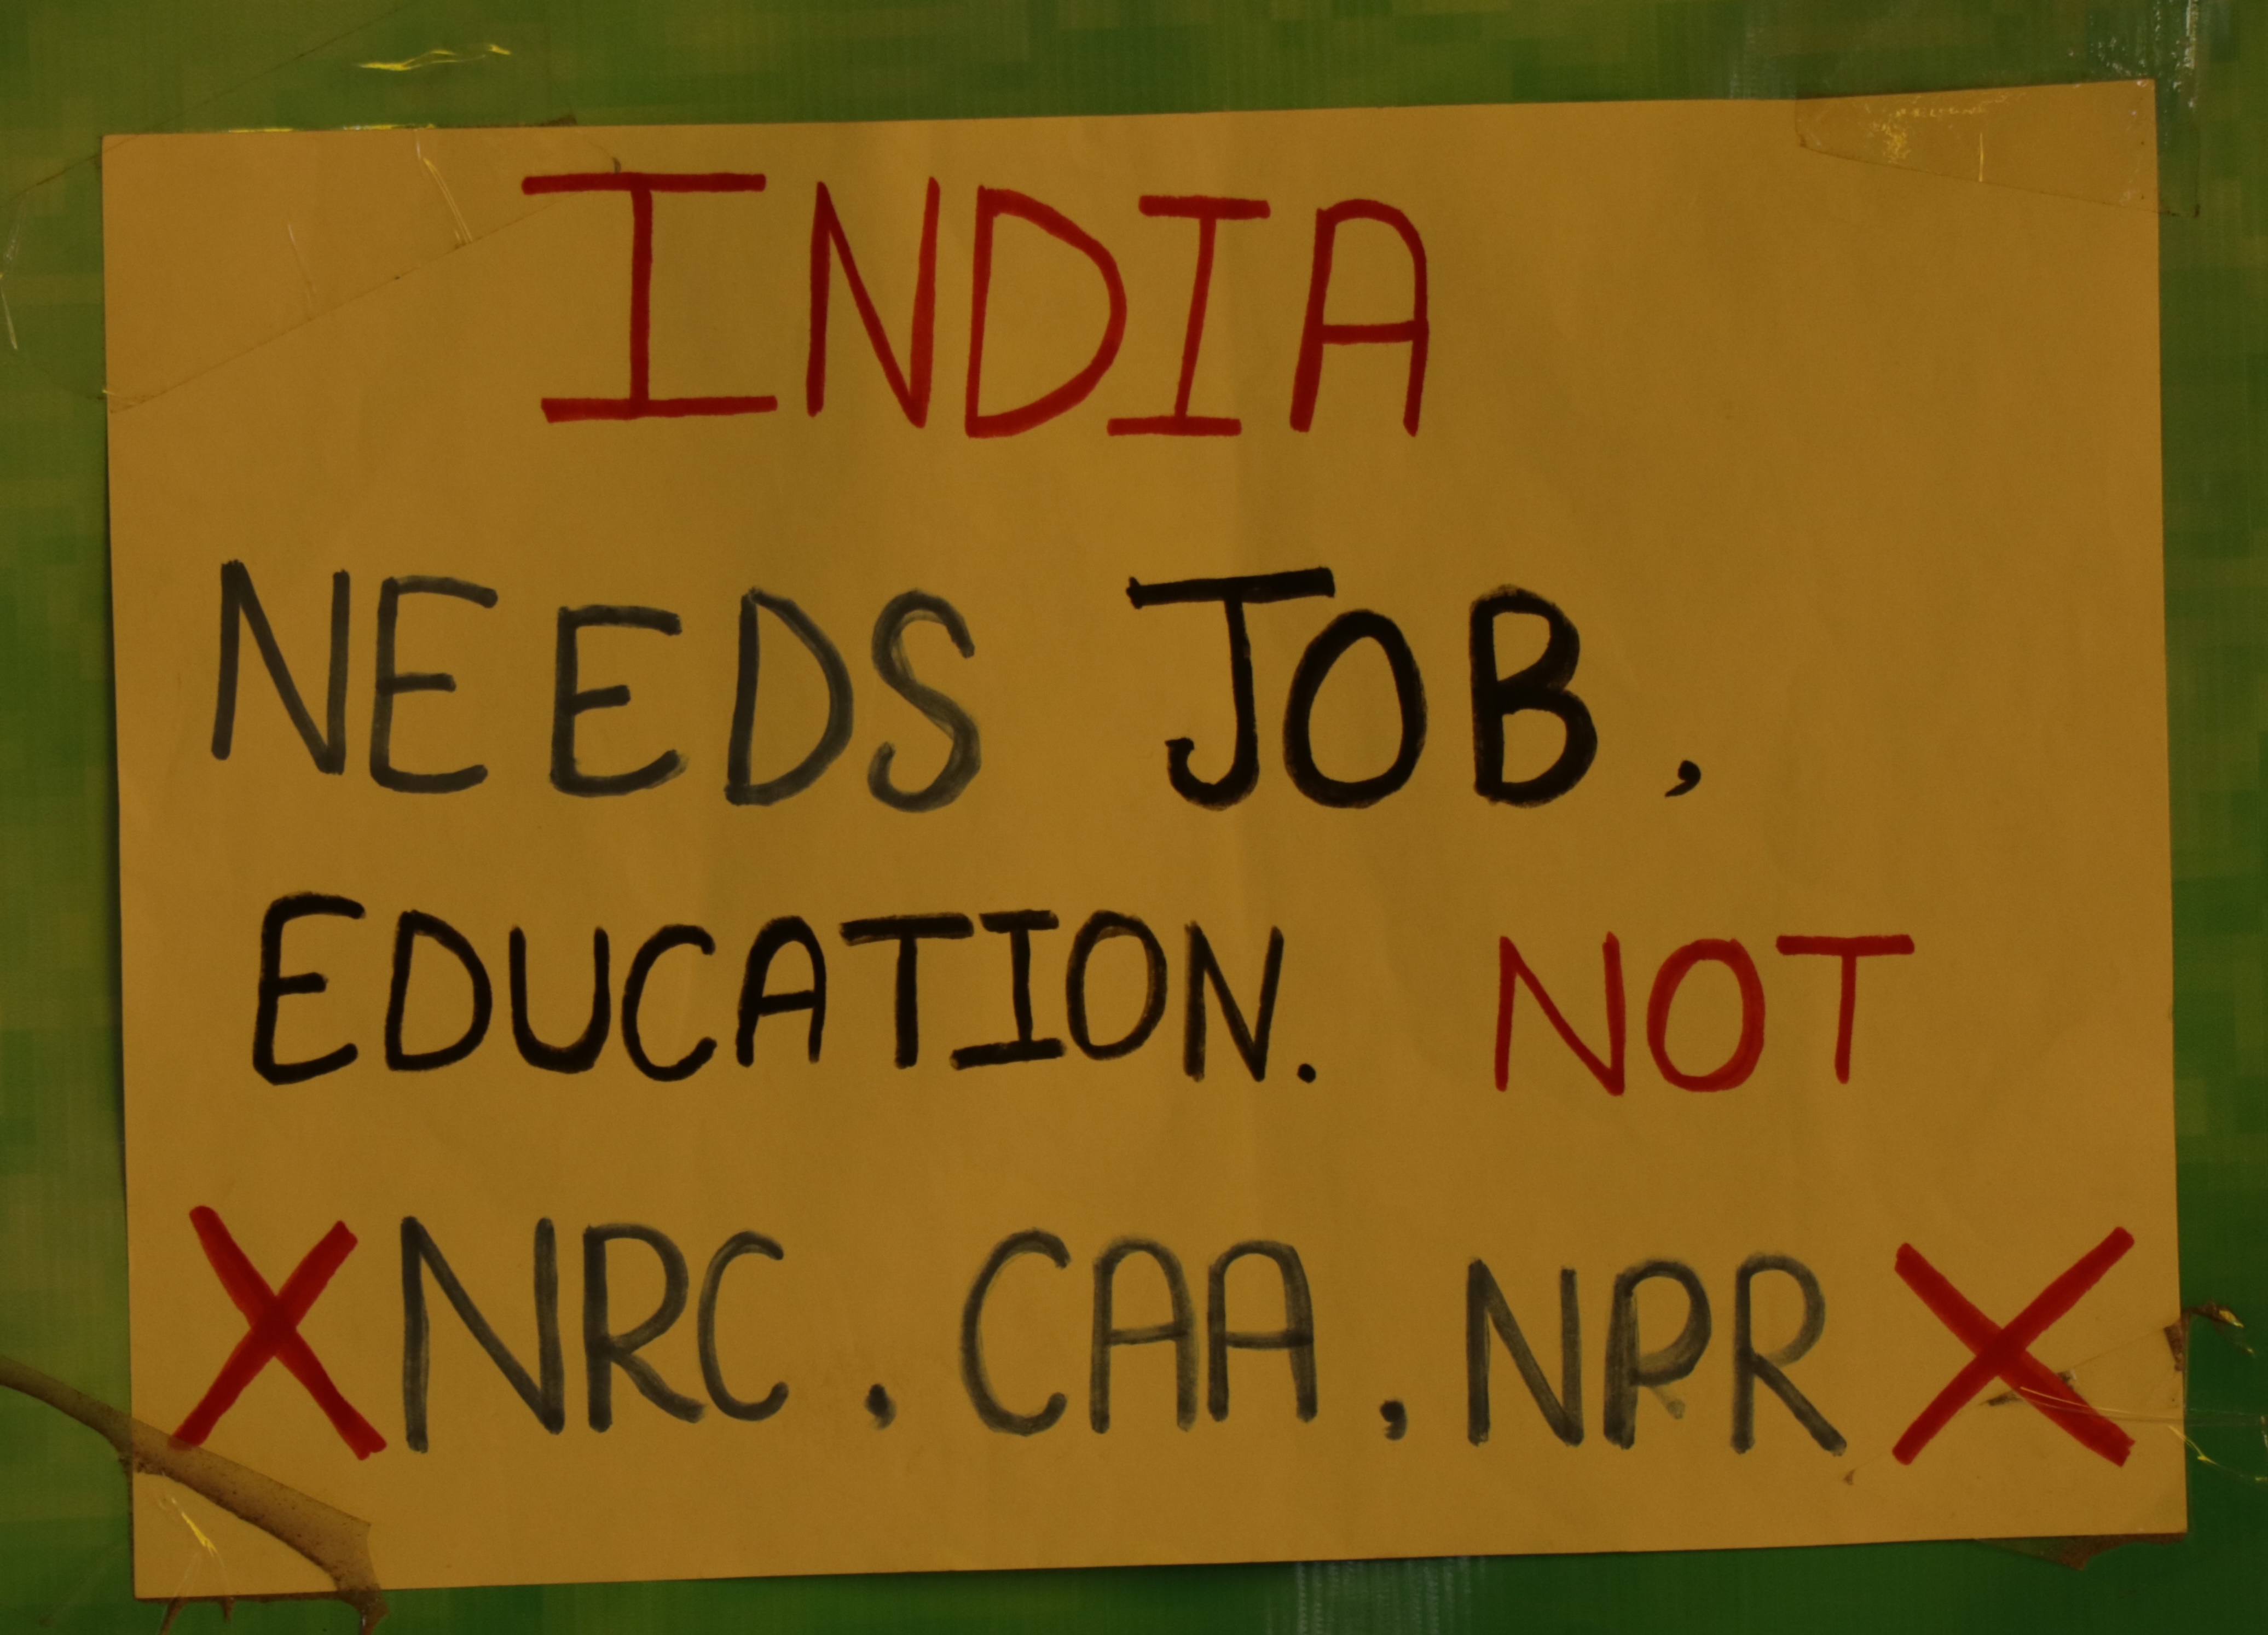 INDIA
NEEDS JOB,
EDUCATION. NOT
X NRC, CAA, NPR X